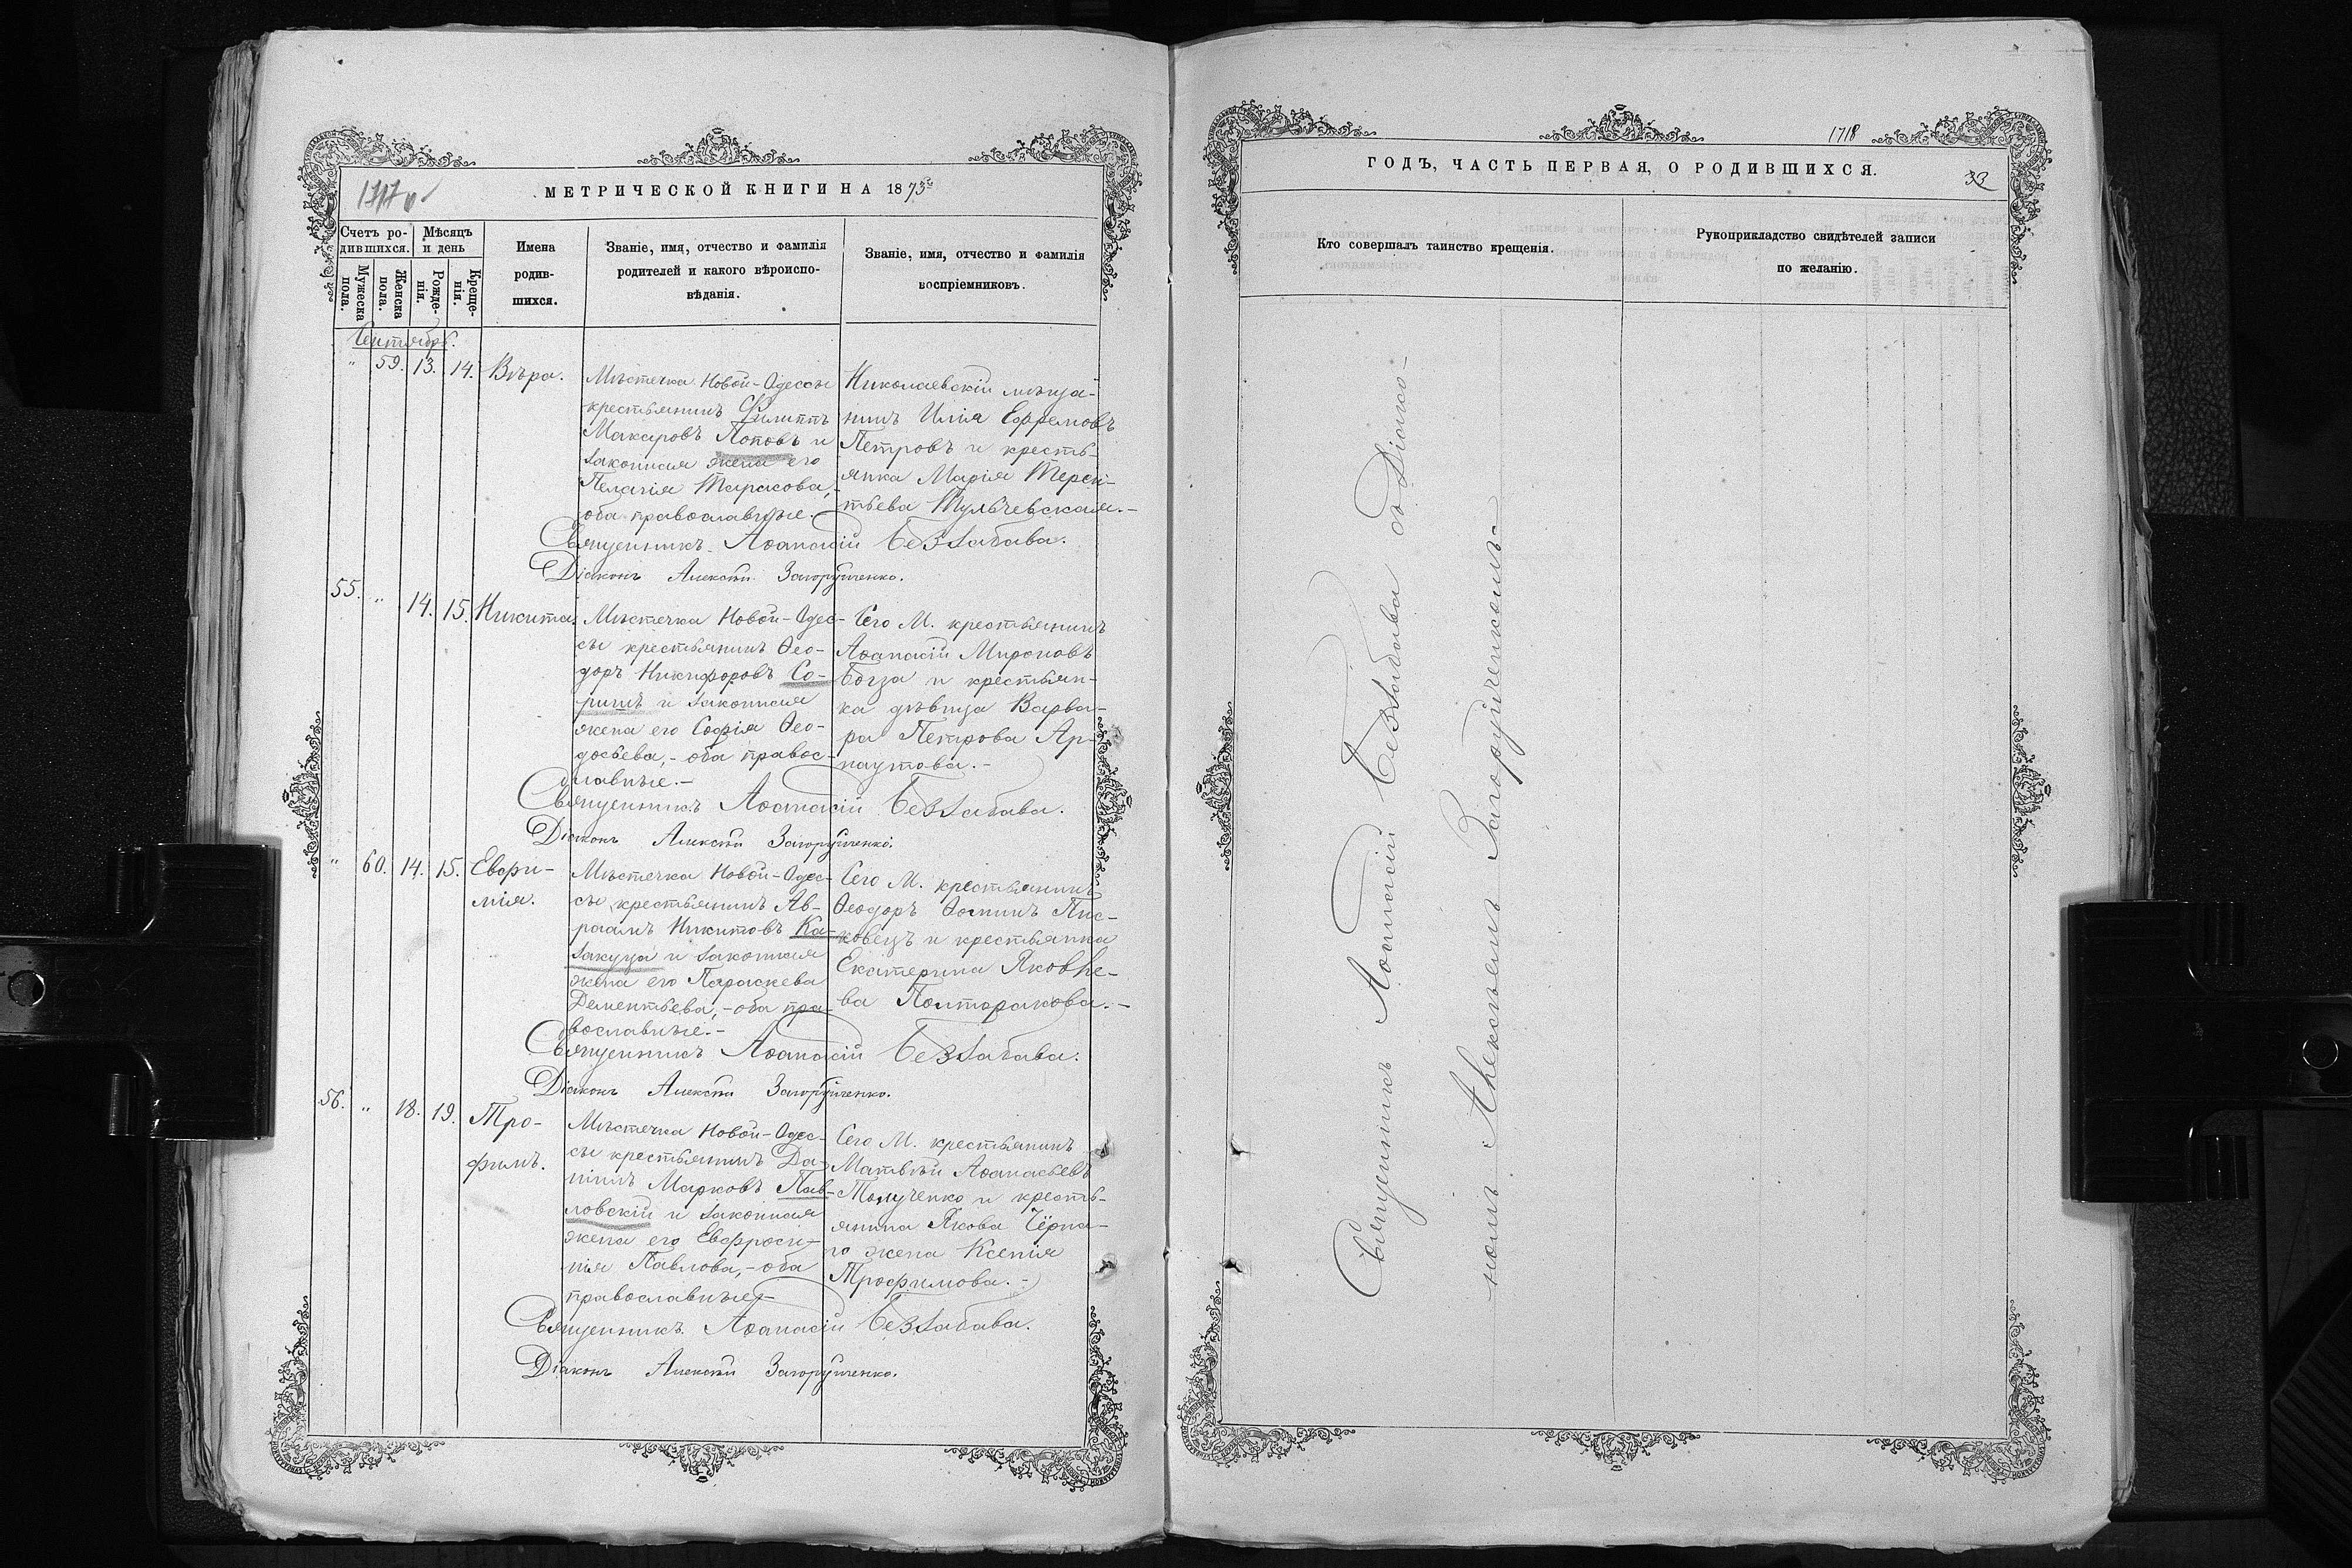 1717 об
МЕТРИЧЕСКОЙ КНИГИ НА 1875й
Счетъ ро-
дившихся.
Мѣсяцъ
и день
Мужеска
пола.
Женска
пола.
Рожде-
нія.
Креще-
нія.
Имена
родив-
шихся.
Званіе, имя, отчество и фамилія
родителей и какого вѣроиспо-
вѣданія.
Званіе, имя, отчество и фамилія
воспріемниковъ.
Сентябрь.
" 59. 13. 14. Вѣра.
Мѣстечка Новой-Одессы
крестьянинъ Филиппъ
Макаровъ Поповъ и
законная жена его
Пелагія Тарасова,-
оба православные.-
Николаевскій мѣща-
нинъ Илія Ефремовъ
Петровъ и кресть-
янка Марія Терен-
тьева Тульчевская.-
Священникъ Аѳанасій Беззабава.
Діаконъ Алексѣй Загоруйченко.
55. " 14. 15. Никита.
Мѣстечка Новой-Одес-
сы крестьянинъ Ѳео-
доръ Никифоровъ Со-
ричъ и законная
жена его Софія Ѳео-
досьева,- оба правос-
лавные.-
Сего М. крестьянинъ
Аѳанасій Мироновъ
Богза и крестьян-
ка дѣвица Варва-
ра Петрова Ар-
наутова.-
Священникъ Аѳанасій Беззабава.
Діаконъ Алексѣй Загоруйченко.
" 60. 14. 15. Евфи-
мія.
Мѣстечка Новой-Одес-
сы крестьянинъ Ав-
раамъ Никитовъ Ка-
закуца и законная
жена его Параскева
Дементьева,-оба пра-
вославные.-
Сего М. крестьянинъ
Ѳеодоръ Ѳоминъ Пис-
ковецъ и крестьянка
Екатерина Яковле-
ва Полторакова.-
Священникъ Аѳанасій Беззабава.
Діаконъ Алексѣй Загоруйченко.
56. " 18. 19. Тро-
фимъ.
Мѣстечка Новой-Одес-
сы крестьянинъ Да-
ніилъ Марковъ Пав-
ловскій и законная
жена его Евфроси-
нія Павлова,-оба
православные.-
Сего М. крестьянинъ
Матвѣй Аѳанасьевъ
и кресть-
янина Якова Чёрна-
го жена Ксенія
Трофимова.-
Священникъ Аѳанасій Беззабава.
Діаконъ Алексѣй Загоруйченко.
1718
ГОДЪ, ЧАСТЬ ПЕРВАЯ, О РОДИВШИХСЯ.
33
Кто совершалъ таинство крещенія.
Рукоприкладство свидѣтелей записи
по желанію.
Священникъ Аѳанасій Беззабава съ Діако-
номъ Алексѣемъ Загоруйченкомъ